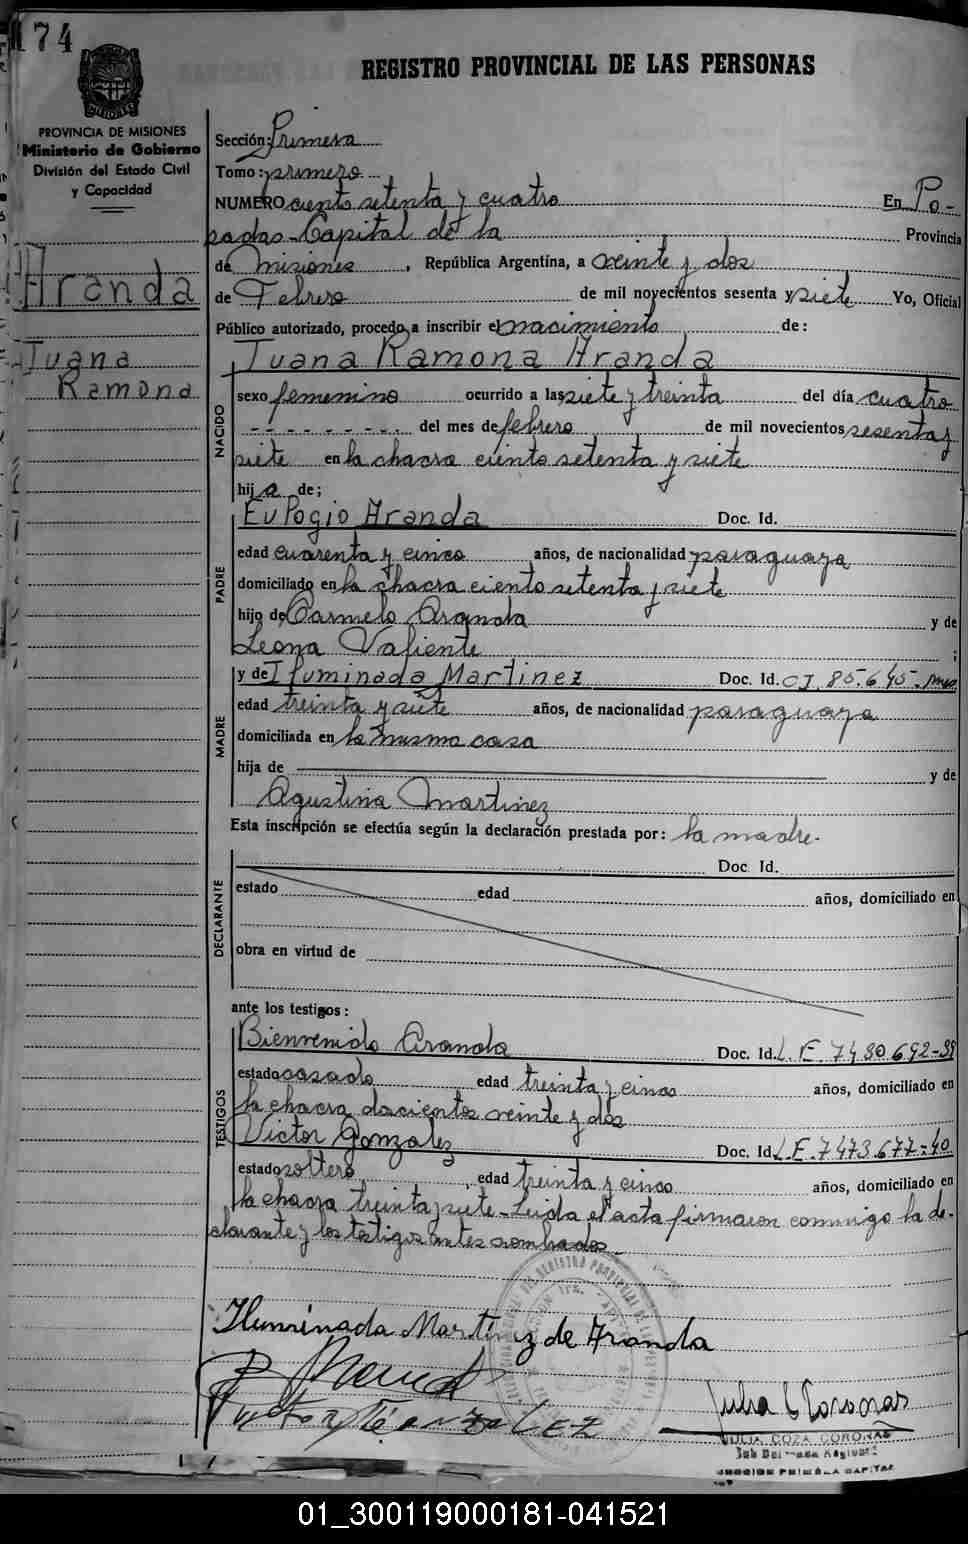 174
REGISTRO PROVINCIAL DE LAS PERSONAS
PROVINCIA DE MISIONES
Ministerio de Gobierno
División del Estado Civil
y Capacidad
Aranda
Juana
Ramona
Sección: Primera
Tomo: primero
NUMERO ciento setenta y cuatro En Po-
sadas-Capital de la Provincia
de Misiones, República Argentina, a veinte y dos
de Febrero de mil novecientos sesenta y siete Yo, Oficial
Público autorizado, procedo a inscribir el nacimiento de:
Juana Ramona Aranda
NACIDO
sexo femenino ocurrido a las siete y treinta del día cuatro
- - - - - - - - - del mes de febrero de mil novecientos sesenta y
siete en la chacra ciento setenta y siete
hija de;
PADRE
Eulogio Aranda Doc. Id.
edad cuarenta y cinco años, de nacionalidad paraguaya
domiciliado en la chacra ciento setenta y siete
hijo de Carmelo Aranda y de
Leona Valiente ;
MADRE
y de Iluminada Martinez Doc. Id. CI. 85.645-
edad treinta y siete años, de nacionalidad paraguaya
domiciliada en la misma casa
hija de y de
Agustina Martinez
Esta inscripción se efectúa según la declaración prestada por: la madre.
DECLARANTE
Doc. Id.
estado edad años, domiciliado en
obra en virtud de
ante los testigos:
TESTIGOS
Bienvenido Aranda Doc. Id. L.E. 7480.692-39
estado casado edad treinta y cinco años, domiciliado en
la chacra doscientos veinte y dos
Victor Gonzalez Doc. Id. L.E. 7473.677-40
estado soltero, edad treinta y cinco años, domiciliado en
la chacra treinta y siete-Leida el acta firmaron conmigo la de-
clarante y los testigos antes nombrados
Iluminada Martínez de Aranda
B. Aranda
Victor Gonzalez
Julia C Coronas
JULIA COZA CORONAS
SECCION PRIMERA CAPITAL
01_300119000181-041521